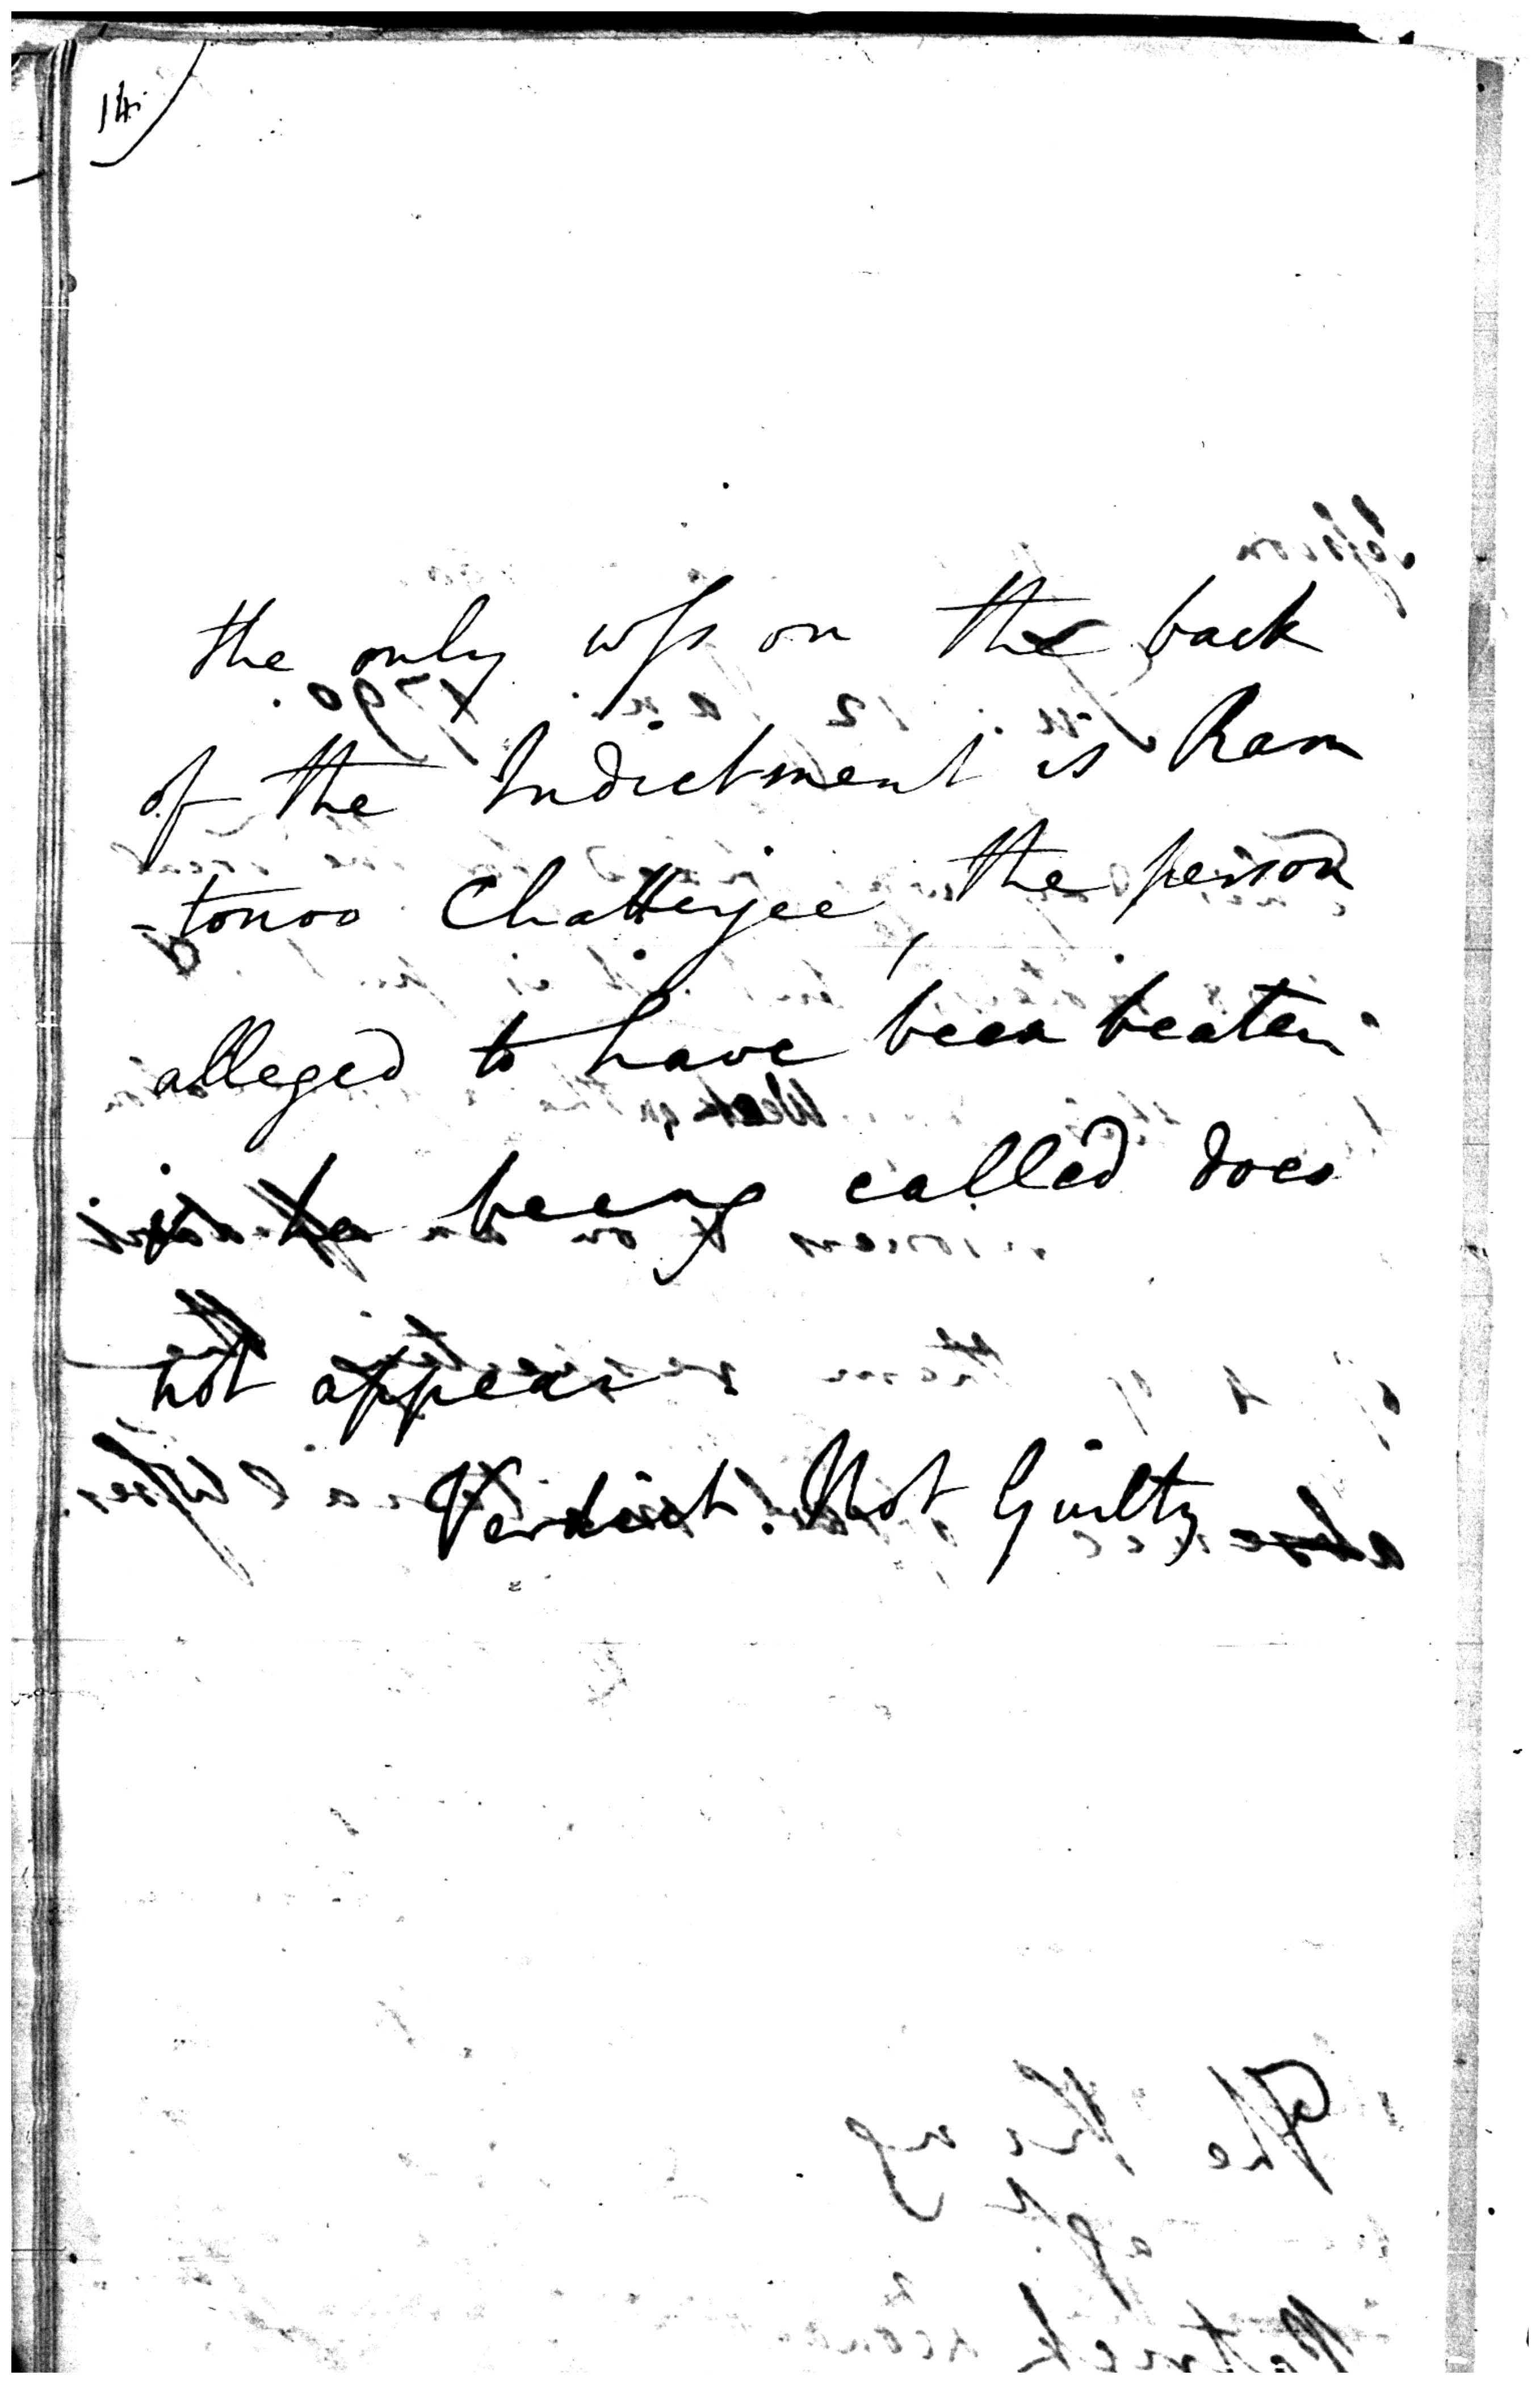 14
the only wss on the back
of the Indictment is Ram
-tonoo Chatterjee, the person
alleged to have been beaten
he being called does
not appear
Verdict. Not Guilty